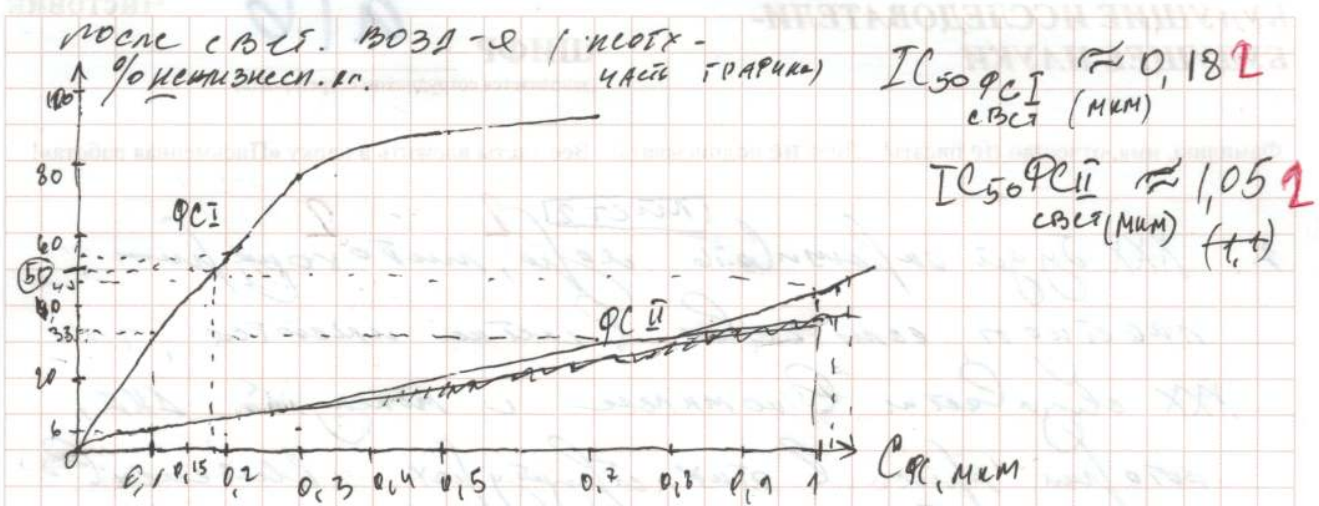 после свет. возд-я (неотх-
часть графика)
% нежизнесп. кл.
100
80
60
50
45
40
33
20
6
0
ФСI
ФСII
0,1 0,15 0,2 0,3 0,4 0,5 0,7 0,8 0,9 1
Cфс, мкм
IC50 ФСI ≈ 0,18 1
свет (мкм)
IC50 ФСII ≈ 1,05 1
свет (мкм) (1,1)